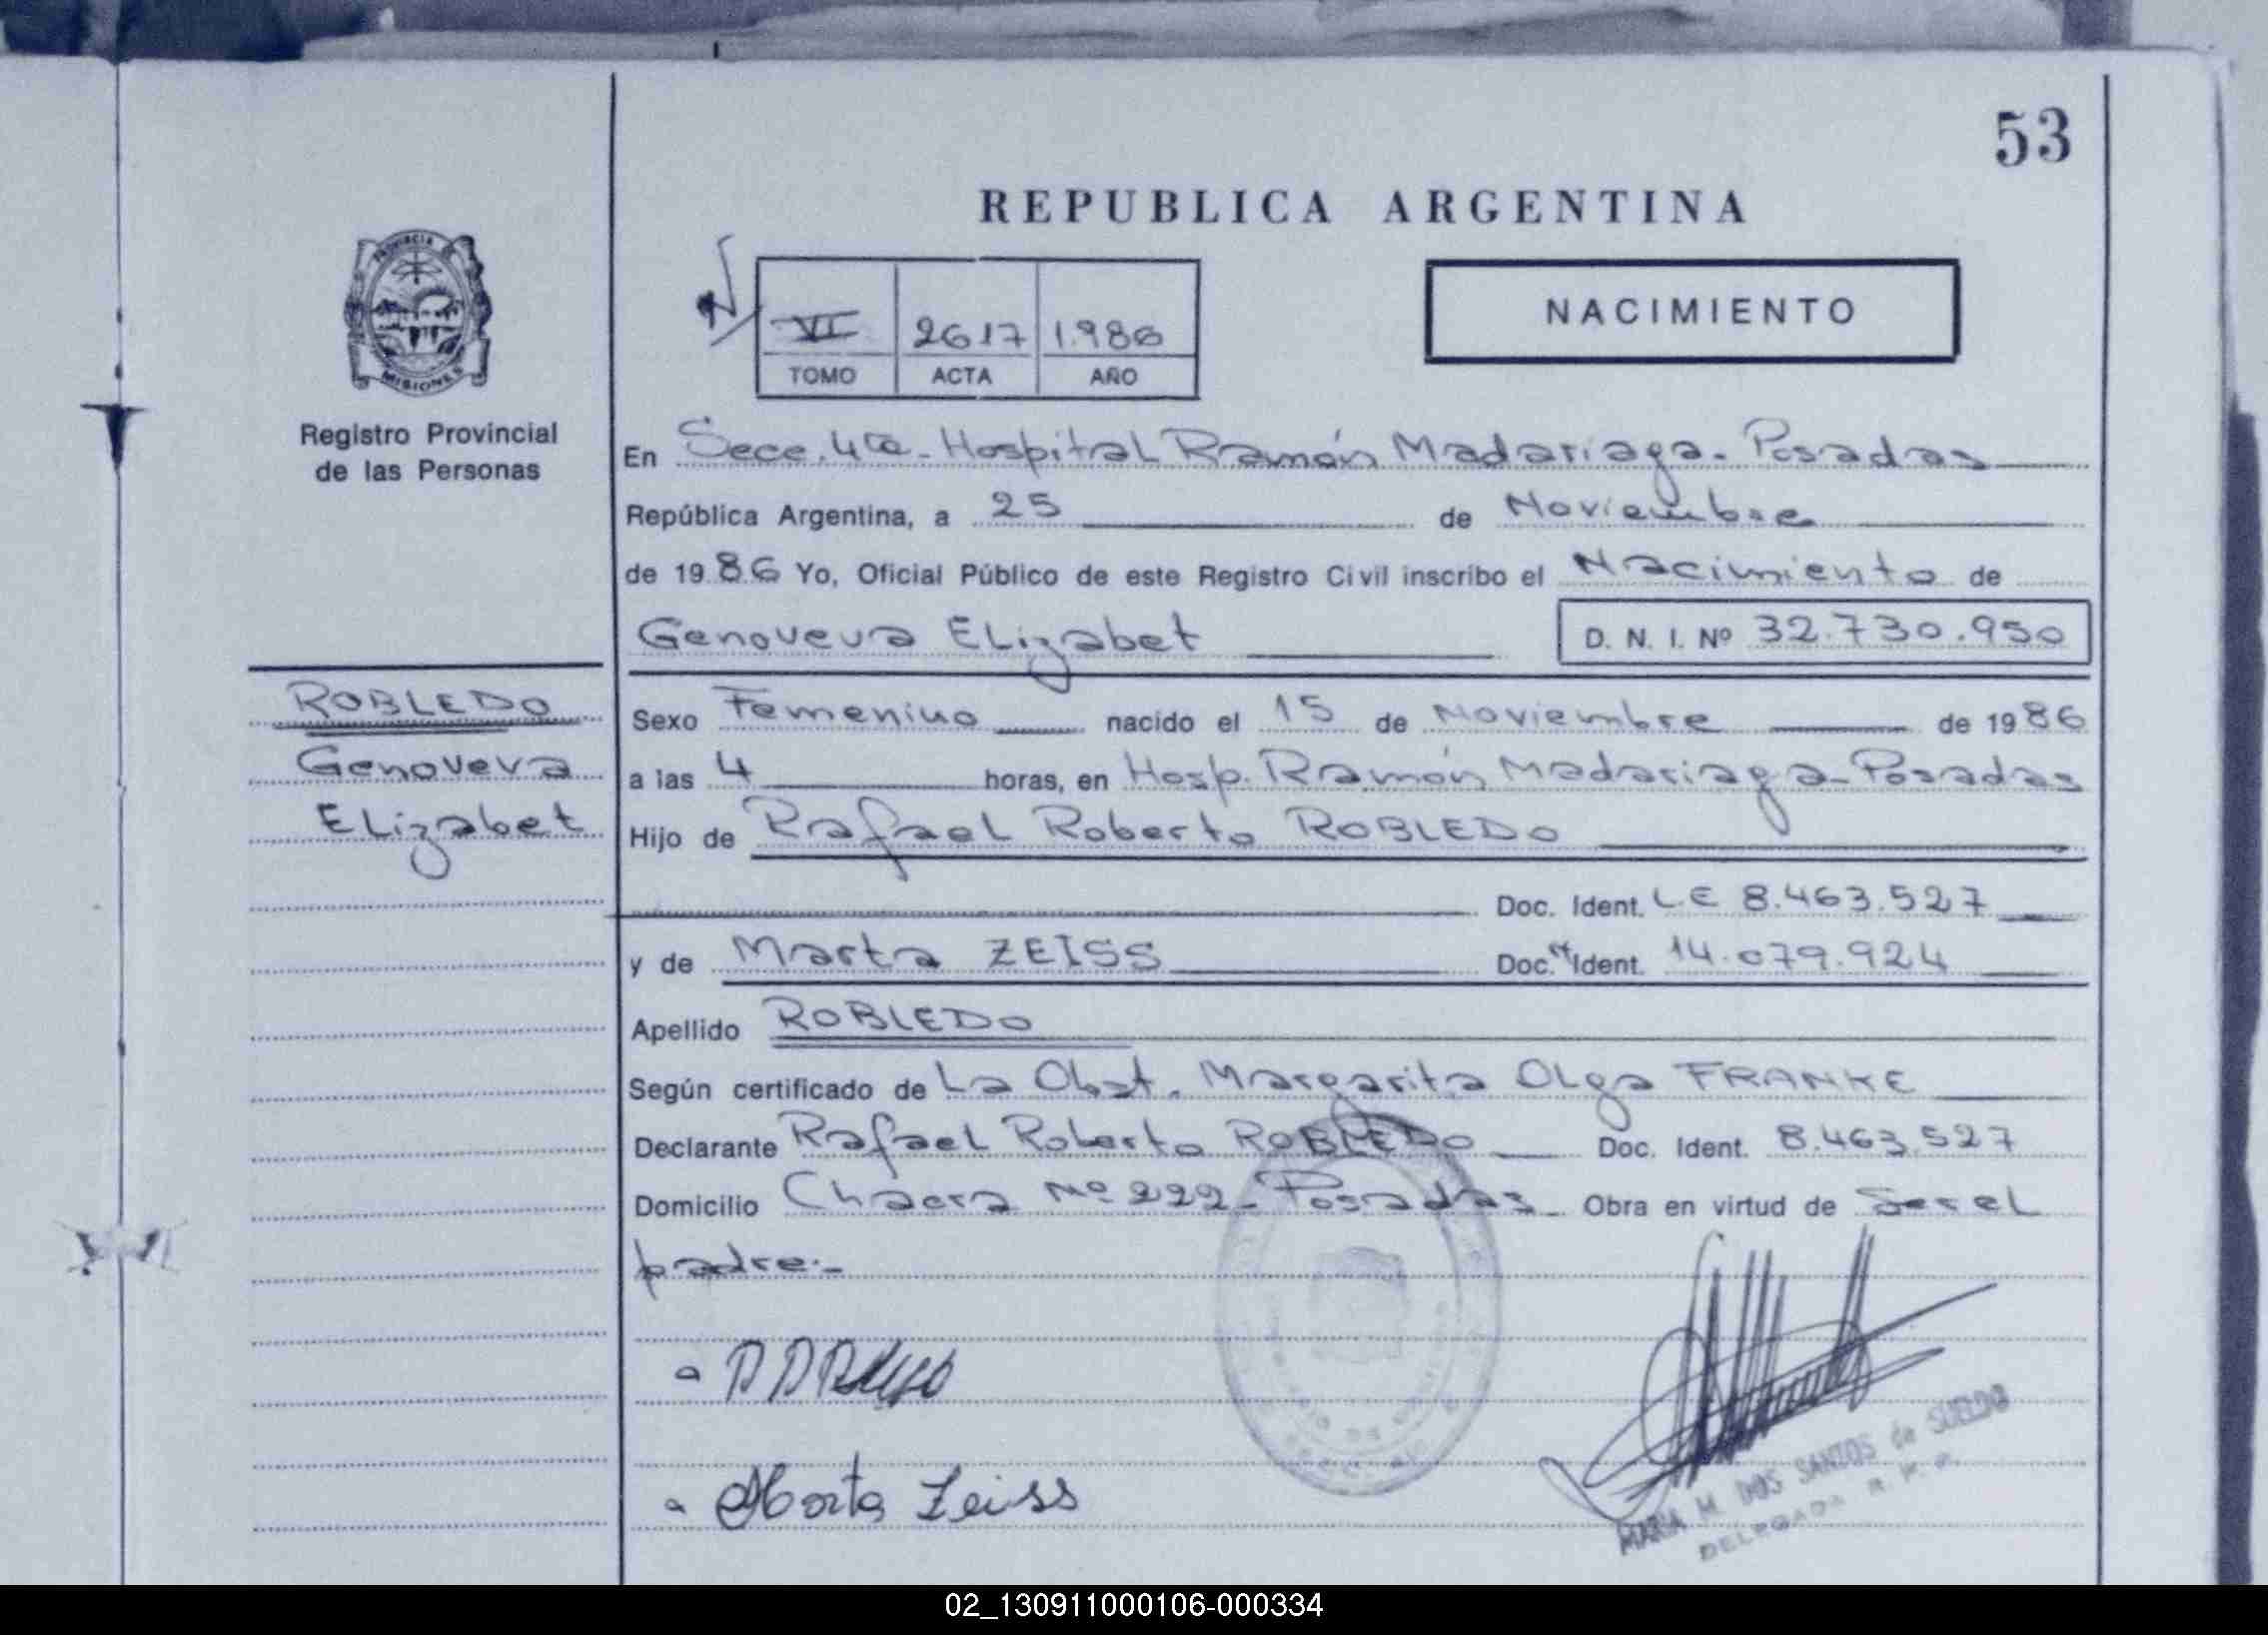 53
REPUBLICA ARGENTINA
PROVINCIA DE
MISIONES
Registro Provincial
de las Personas
VI 2617 1.986
TOMO ACTA AÑO
NACIMIENTO
En Secc. 4ta - Hospital Ramón Madariaga - Posadas
República Argentina, a 25 de Noviembre
de 1986 Yo, Oficial Público de este Registro Civil inscribo el Nacimiento de
Genoveva Elizabet D. N. I. Nº 32.730.950
ROBLEDO
Genoveva
Elizabet
Sexo Femenino nacido el 15 de Noviembre de 1986
a las 4 horas, en Hosp. Ramón Madariaga - Posadas
Hijo de Rafael Roberto ROBLEDO
Doc. Ident. LE 8.463.527
y de Marta ZEISS Doc. Ident. 14.079.924
Apellido ROBLEDO
Según certificado de La Obst. Margarita Olga FRANKE
Declarante Rafael Roberto ROBLEDO Doc. Ident. 8.463.527
Domicilio Chacra Nº 222 - Posadas - Obra en virtud de Ser el
padre.-
Marta Zeiss
MARIA M. DOS SANTOS de SUELDO
DELEGADA R. P. P.
02_130911000106-000334